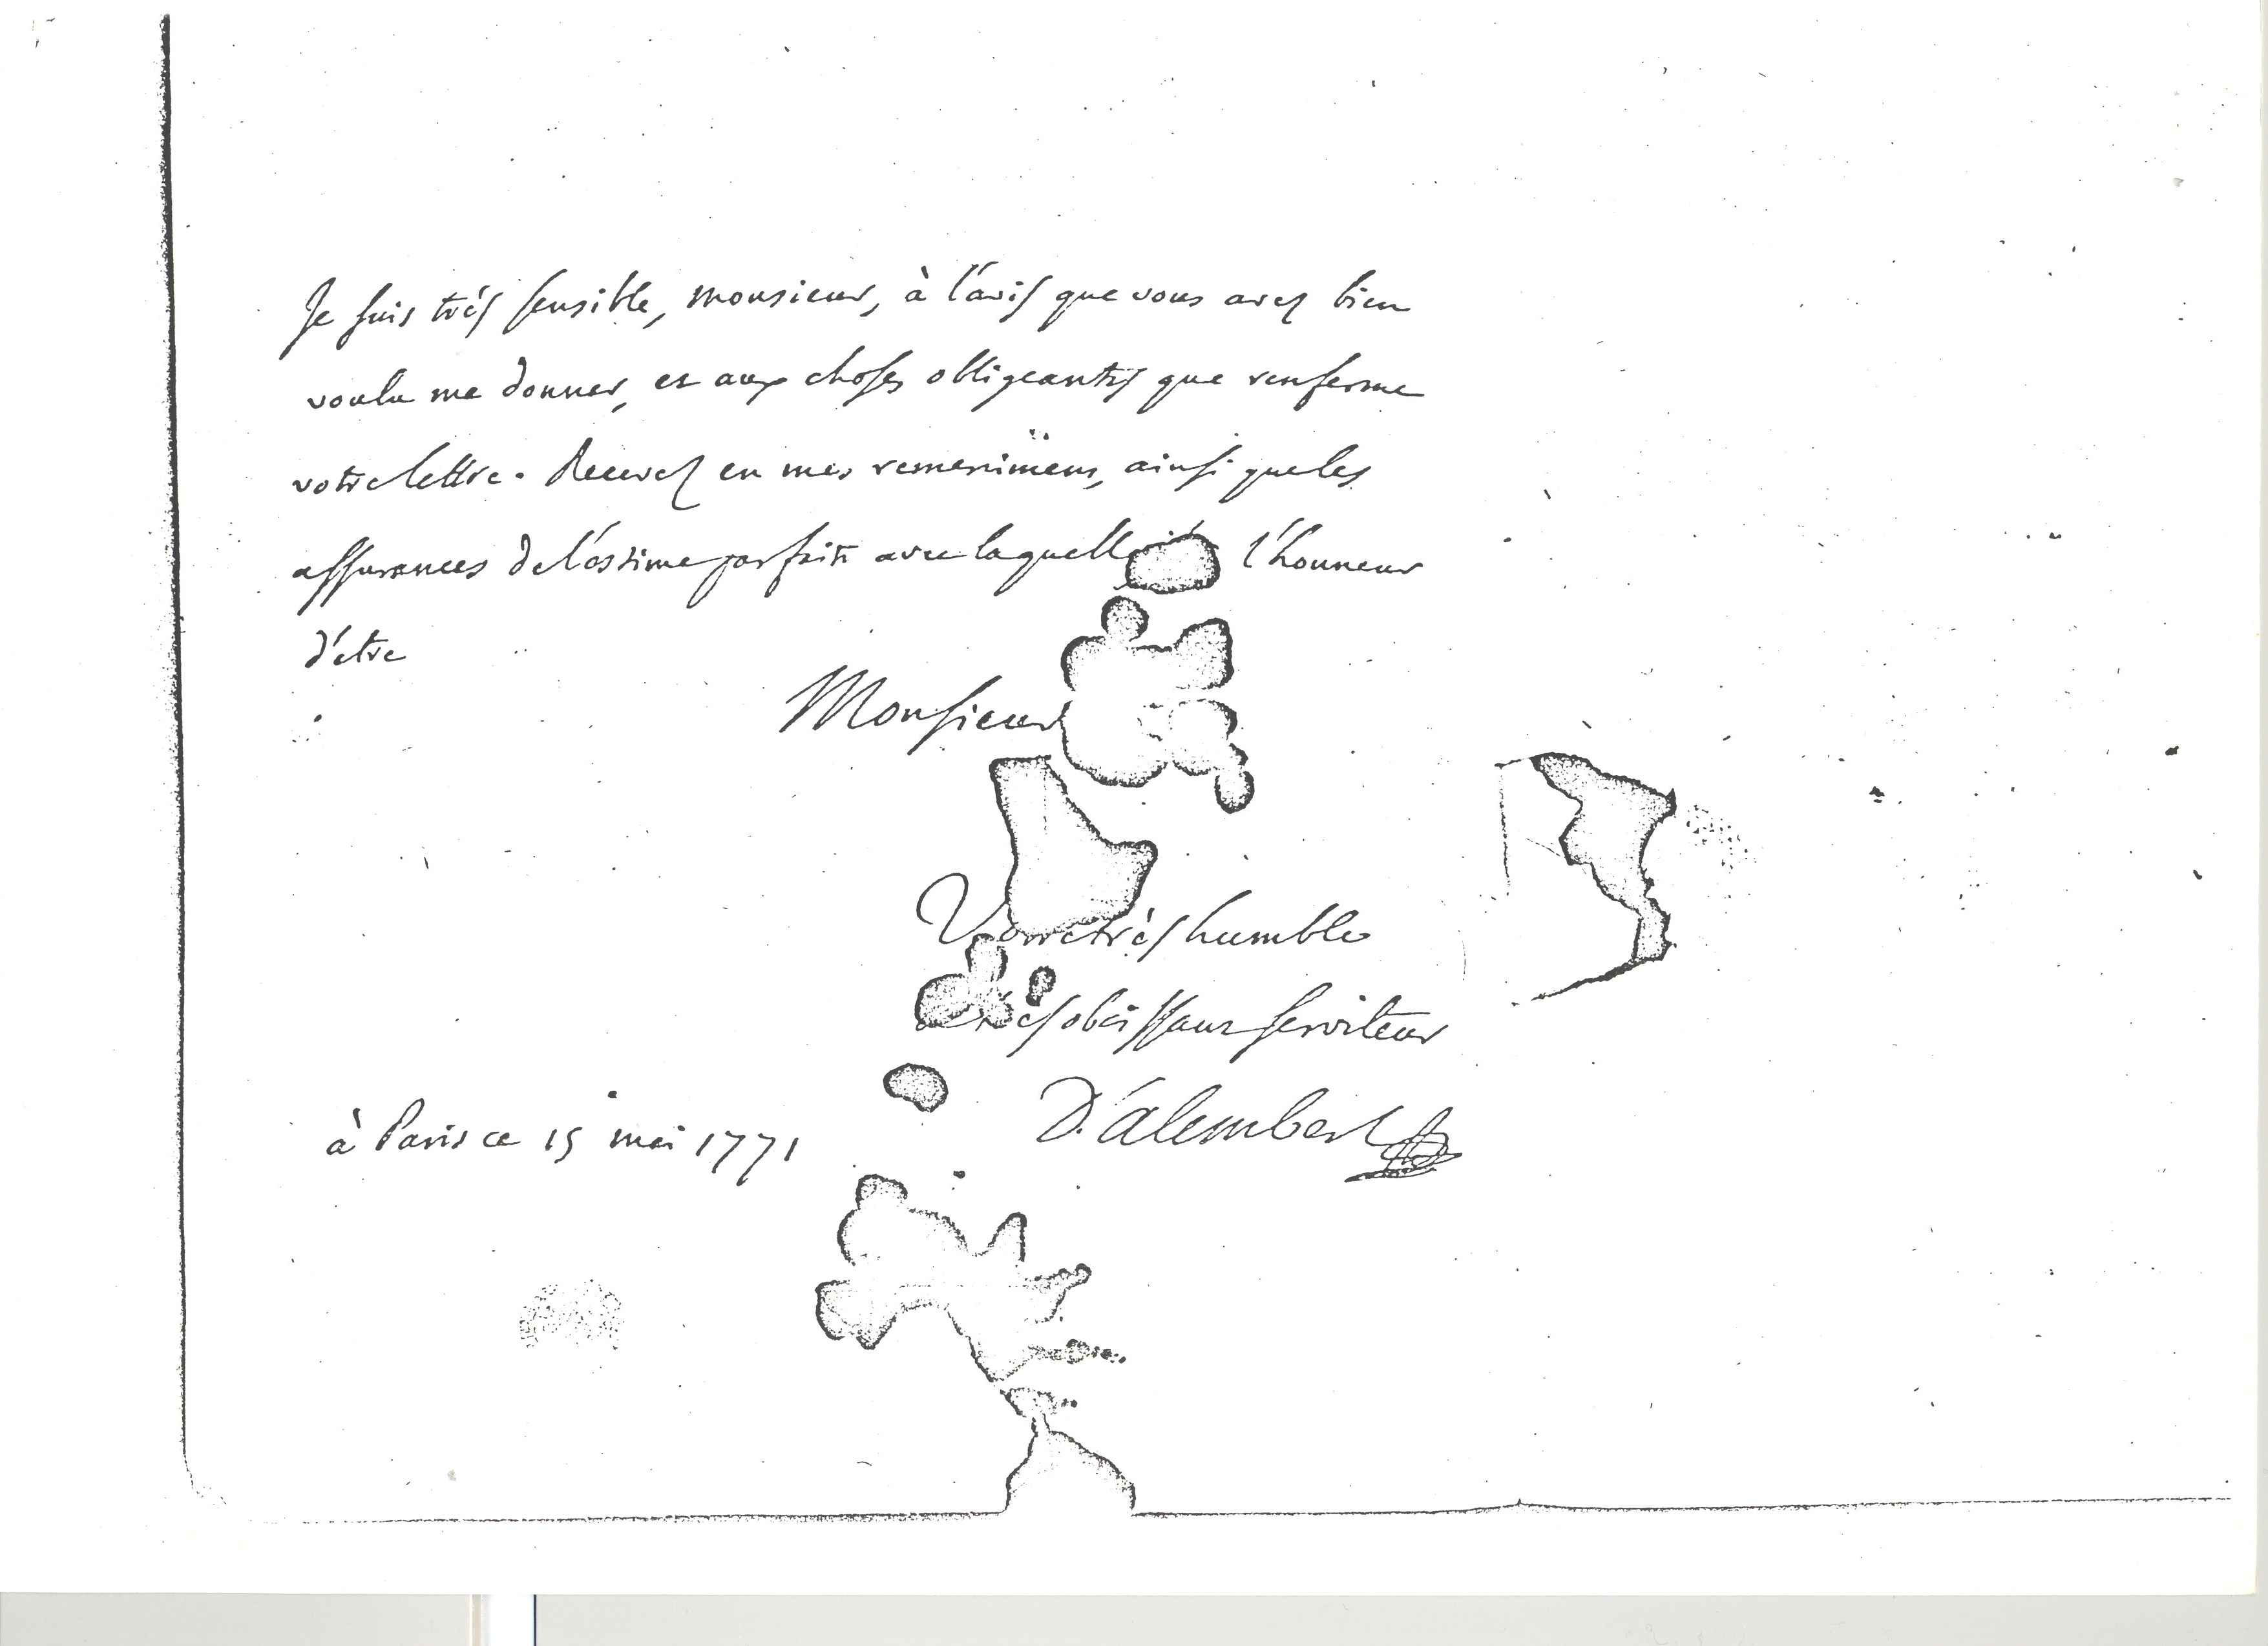 Je suis très sensible, monsieur, à l'avis que vous avez bien
voulu me donner, et aux choses obligeantes que renferme
votre lettre. Recevez en mes remercimens, ainsi que les
assurances de l'estime parfaite avec laquelle l'honneur
d'etre
Monsieur
Votre très humble
et très obeissant serviteur
D'alembert
à Paris ce 15 mai 1771